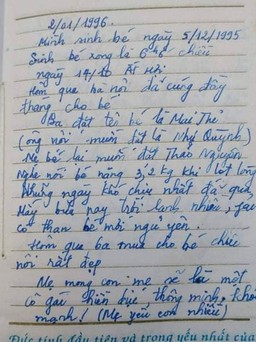 2/01/1996.
Mình sinh bé ngày 5/12/1995
Sinh bé xong là 6h chiều
ngày 14/10 Ất Hợi
Hôm qua bà nội đã cúng đầy
tháng cho bé
Ba đặt tên bé là Mai Thi
(ông nội muốn đặt là Như Quỳnh)
Mẹ bé lại muốn đặt Thảo Nguyên
Nghe nói bé nặng 3,2 kg khi lọt lòng
Những ngày khó chịu nhất đã qua
Mấy bữa nay trời lạnh nhiều, 
có than bé mới ngủ yên.
Hôm qua ba mua cho bé chiếc
nôi rất đẹp
Mẹ mong con mẹ sẽ là một
cô gái hiền dịu, thông minh, khỏe
mạnh! (Mẹ yêu con nhiều)
Đức tính đầu tiên và trọng yếu nhất của